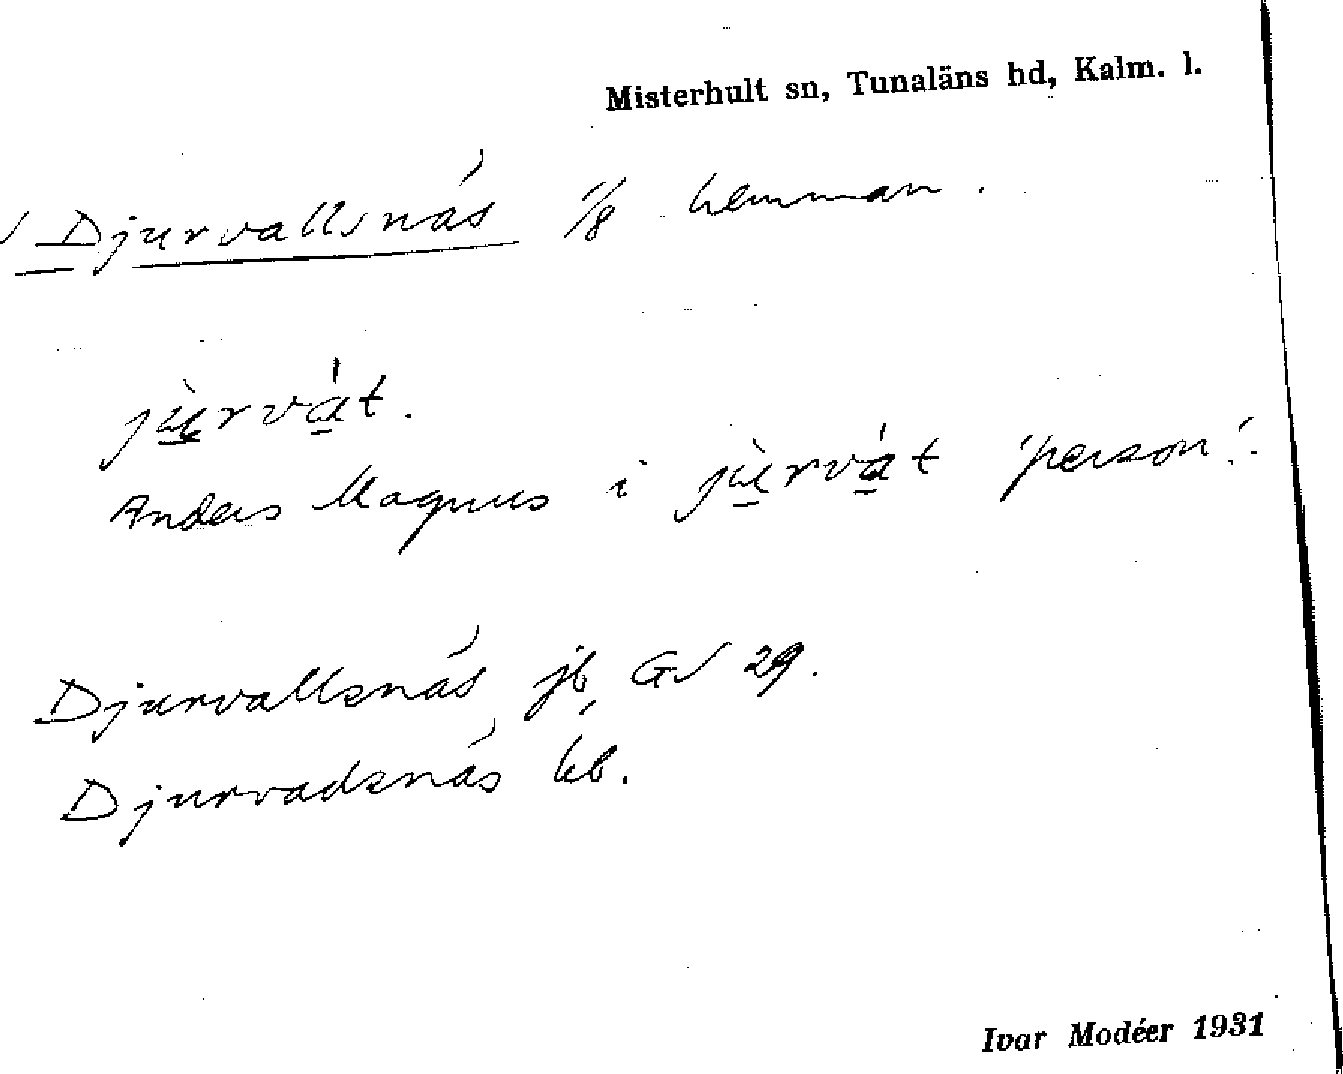 Misterhult sn, Tunaläns hd, Kalm. l.
Djurvallsnäs 1/8 hemman.
jùrvát.
Anders Magnus i jùrvát 'person'.
Djurvallsnäs jb, GV 29.
Djurvadsnäs kb.
Ivar Modéer 1931